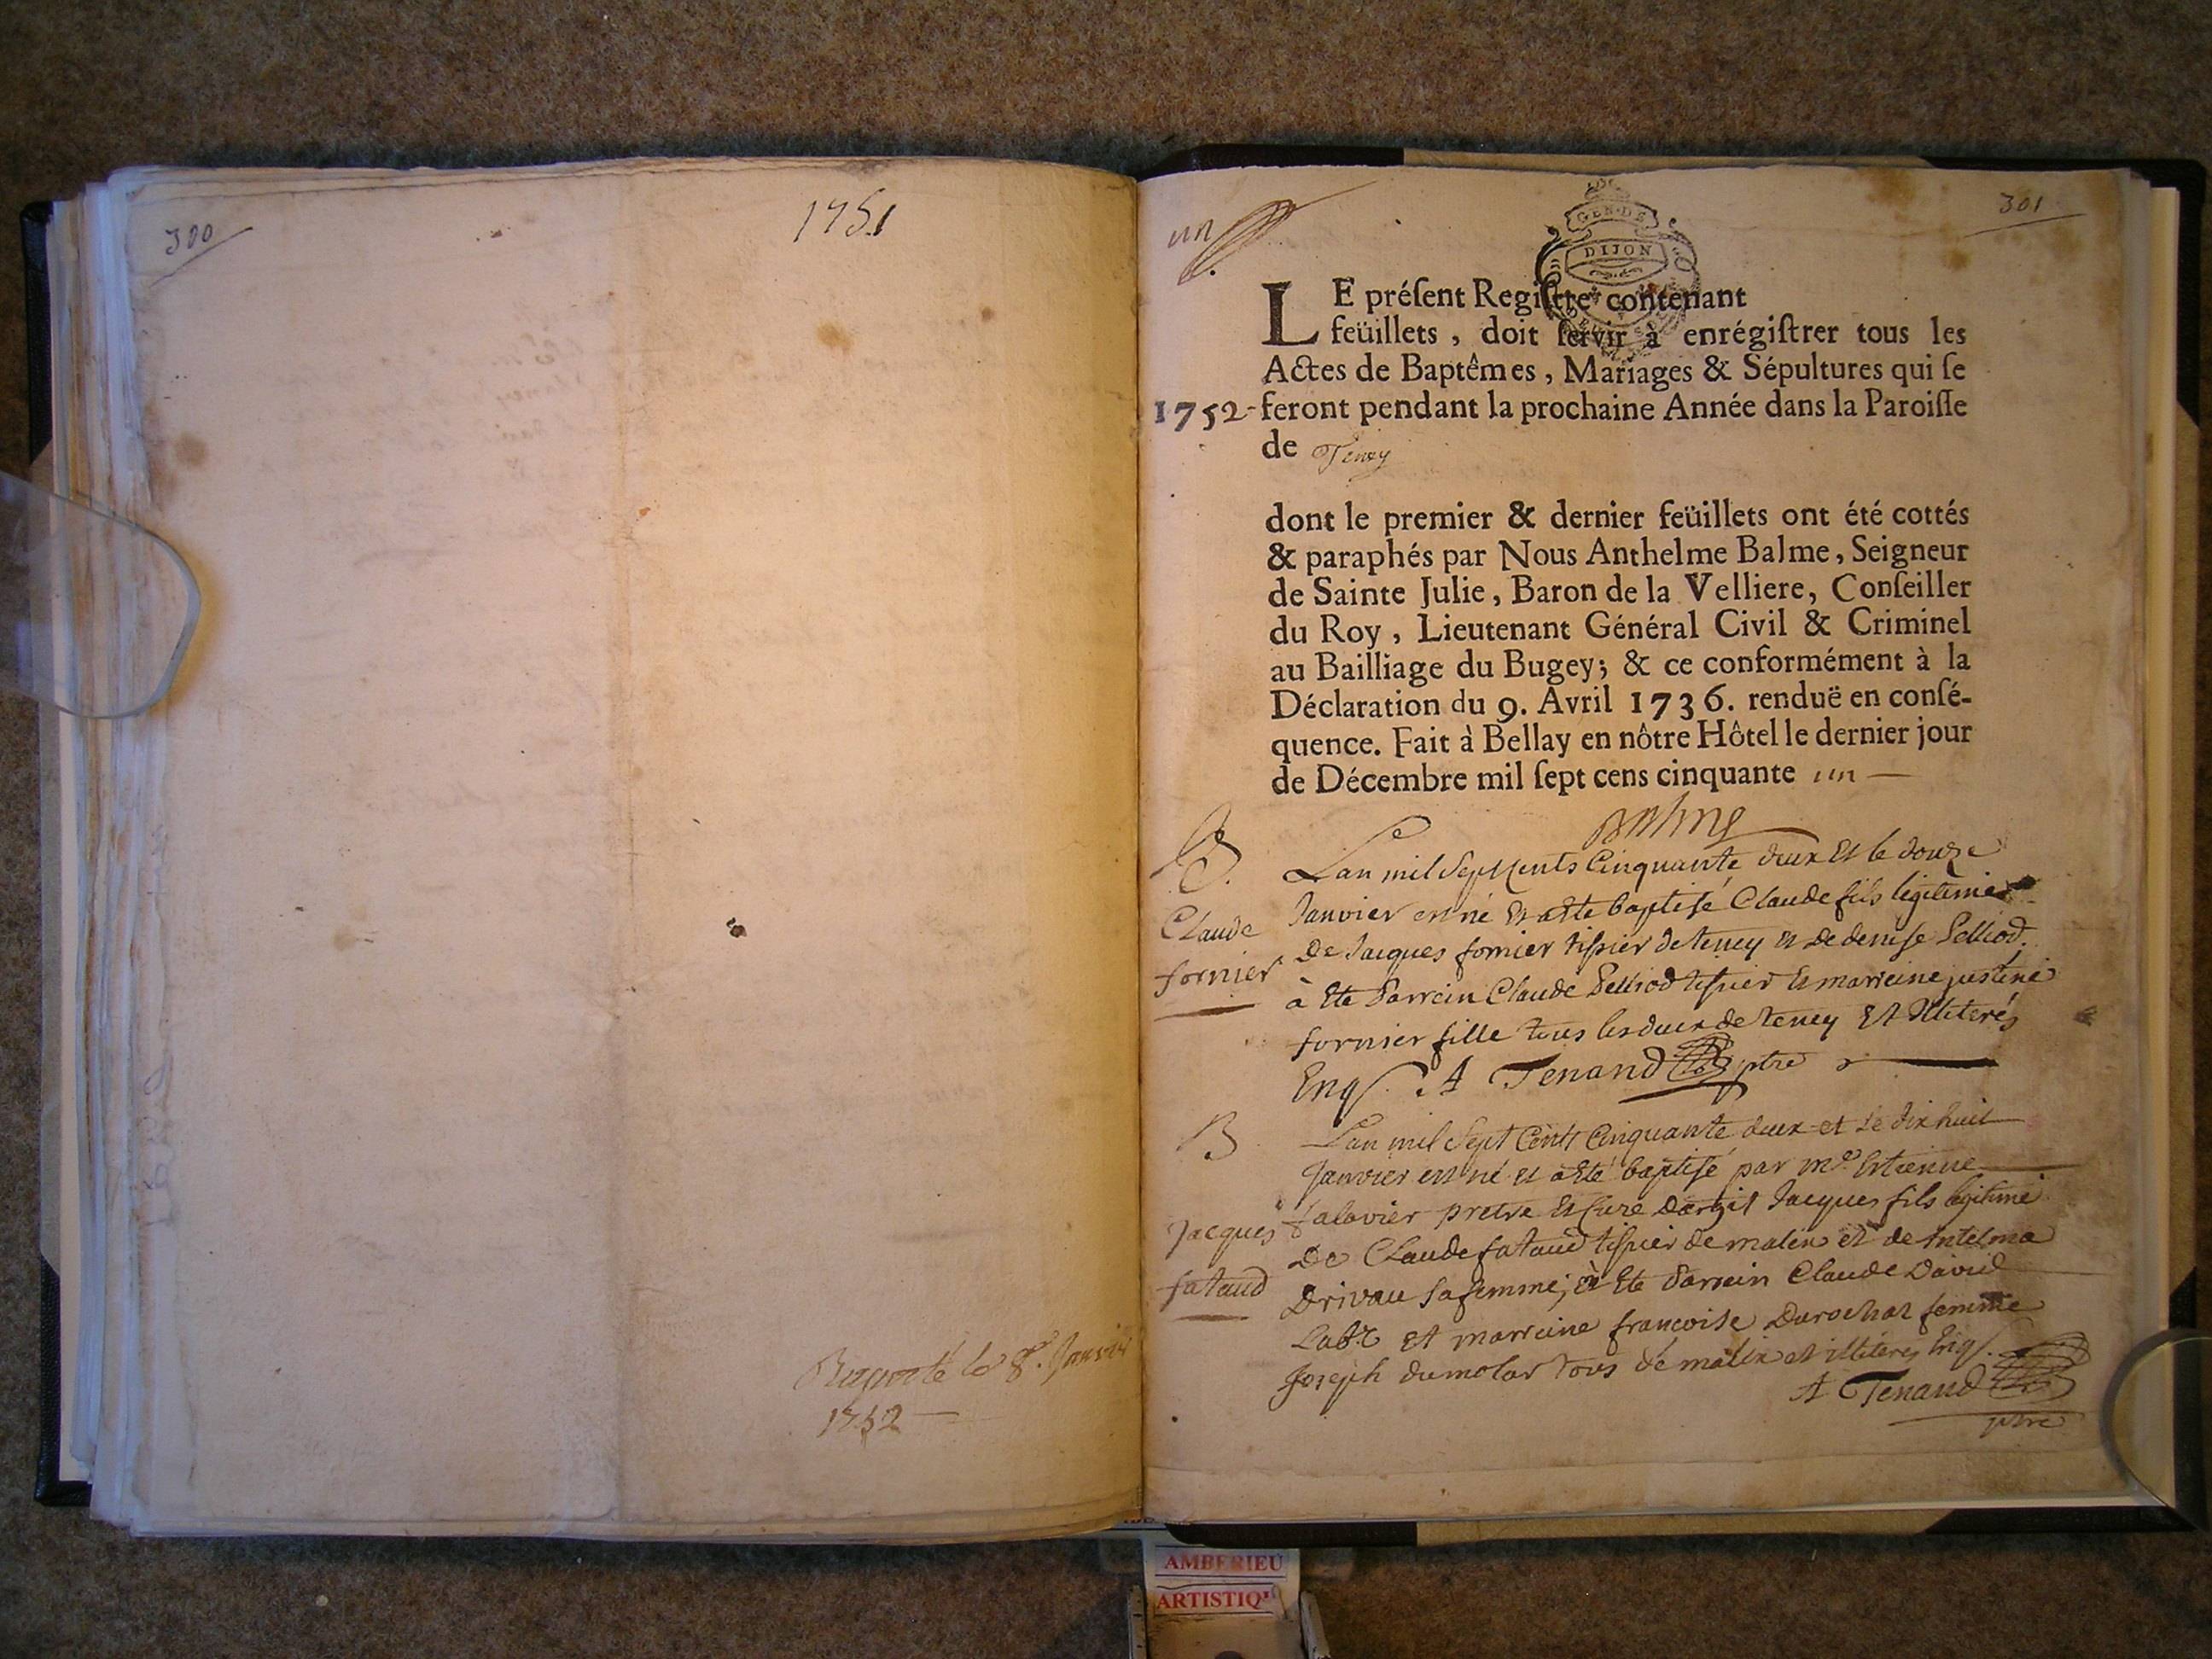 300
1751
Raporté le 8e. Janvier
1752
un
301
GEN. DE
DIJON
LE préſent Regiſtre contenant
feüillets, doit ſervir à enrégiſtrer tous les
Actes de Baptêmes, Mariages & Sépultures qui ſe
1752- feront pendant la prochaine Année dans la Paroiſſe
de Teney
dont le premier & dernier feüillets ont été cottés
& paraphés par Nous Anthelme Balme, Seigneur
de Sainte Julie, Baron de la Velliere, Conſeiller
du Roy, Lieutenant Général Civil & Criminel
au Bailliage du Bugey; & ce conformément à la
Déclaration du 9. Avril 1736. renduë en conſé-
quence. Fait à Bellay en nôtre Hôtel le dernier jour
de Décembre mil ſept cens cinquante un
Balme
B.
Claude
fornier
Lan mil Sept Cents Cinquante deux Et le douze
Janvier est né Et a Ete baptisé Claude fils legitime
De Jacques fornier tissier de teney et De denise Pelliod.
à Ete Parrein Claude Pelliod tissier Et marreine justine
fornier fille tous les deux de teney Et Illiterés
Enqs. A Tenand ptre
B
Jacques
fataud
Lan mil Sept Cents Cinquante deux et Le dix huit
Janvier est né et a Eté baptisé par mre. Estienne
falavier pretre Et Curé Dargit Jacques fils legitime
De Claude fataud tissier de malix et de Antelma
Drivau Sa femme; à Ete Parrein Claude David
Labr. Et marreine francoise Durochat femme
Joseph dumolar tous de malix et illiterés Enqs.
A Tenand
ptre
AMBERIEU
ARTISTIQ